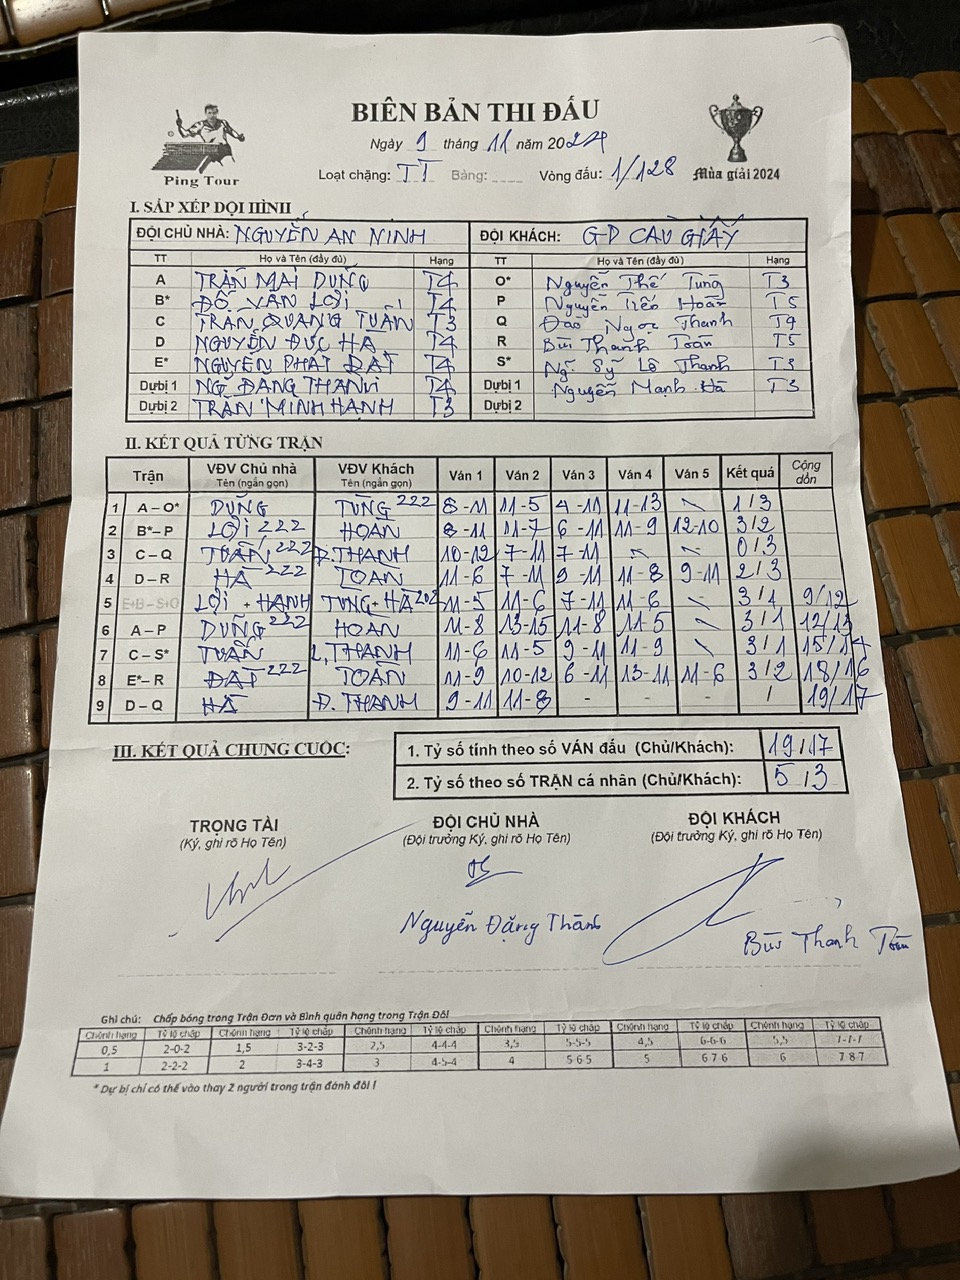 BIÊN BẢN THI ĐẤU
Ngày 9 tháng 11 năm 2024
Ping Tour
Loạt chặng: TT Bảng: ____ Vòng đấu: 1/128
Mùa giải 2024
I. SẮP XẾP ĐỘI HÌNH
ĐỘI CHỦ NHÀ: NGUYỄN AN NINH ĐỘI KHÁCH: GD CẦU GIẤY
TT Họ và Tên (đầy đủ) Hạng TT Họ và Tên (đầy đủ) Hạng
A TRẦN MAI DŨNG T4 O* Nguyễn Thế Tùng T3
B* ĐỖ VĂN LỢI T4 P Nguyễn Tiến Hoàn T5
C TRẦN QUANG TUẤN T3 Q Đào Ngọc Thanh T4
D NGUYỄN ĐỨC HÀ T4 R Bùi Thanh Toàn T5
E* NGUYỄN PHÁT ĐẠT T4 S* Ng. Sỹ Lê Thanh T3
Dự bị 1 NG ĐĂNG THANH T4 Dự bị 1 Nguyễn Mạnh Hà T3
Dự bị 2 TRẦN MINH HẠNH T3 Dự bị 2
II. KẾT QUẢ TỪNG TRẬN
Trận VĐV Chủ nhà Tên (ngắn gọn) VĐV Khách Tên (ngắn gọn) Ván 1 Ván 2 Ván 3 Ván 4 Ván 5 Kết quả Cộng dồn
1 A – O* DŨNG TÙNG 222 8-11 11-5 4-11 11-13 \ 1/3
2 B* – P LỢI 222 HOÀN 8-11 11-7 6-11 11-9 12-10 3/2
3 C – Q TUẤN 222 Đ.THANH 10-12 7-11 7-11 \ \ 0/3
4 D – R HÀ 222 TOÀN 11-6 7-11 9-11 11-8 9-11 2/3
5 E+B – S+O LỢI + HẠNH TÙNG+HÀ 202 11-5 11-6 7-11 11-6 \ 3/1 9/12
6 A – P DŨNG 222 HOÀN 11-8 13-15 11-8 11-5 \ 3/1 12/13
7 C – S* TUẤN L.THANH 11-6 11-5 9-11 11-9 \ 3/1 15/14
8 E* – R ĐẠT 222 TOÀN 11-9 10-12 6-11 13-11 11-6 3/2 18/16
9 D – Q HÀ Đ.THANH 9-11 11-8 - - - / 19/17
III. KẾT QUẢ CHUNG CUỘC:
1. Tỷ số tính theo số VÁN đấu (Chủ/Khách): 19/17
2. Tỷ số theo số TRẬN cá nhân (Chủ/Khách): 5/3
TRỌNG TÀI ĐỘI CHỦ NHÀ ĐỘI KHÁCH
(Ký, ghi rõ Họ Tên) (Đội trưởng Ký, ghi rõ Họ Tên) (Đội trưởng Ký, ghi rõ Họ Tên)
Nguyễn Đặng Thành
Bùi Thanh Toàn
Ghi chú: Chấp bóng trong Trận Đơn và Bình quân hạng trong Trận Đôi
Chênh hạng Tỷ lệ chấp Chênh hạng Tỷ lệ chấp Chênh hạng Tỷ lệ chấp Chênh hạng Tỷ lệ chấp Chênh hạng Tỷ lệ chấp Chênh hạng Tỷ lệ chấp
0,5 2-0-2 1,5 3-2-3 2,5 4-4-4 3,5 5-5-5 4,5 6-6-6 5,5 7-7-7
1 2-2-2 2 3-4-3 3 4-5-4 4 5-6-5 5 6-7-6 6 7-8-7
* Dự bị chỉ có thể vào thay 2 người trong trận đánh đôi !